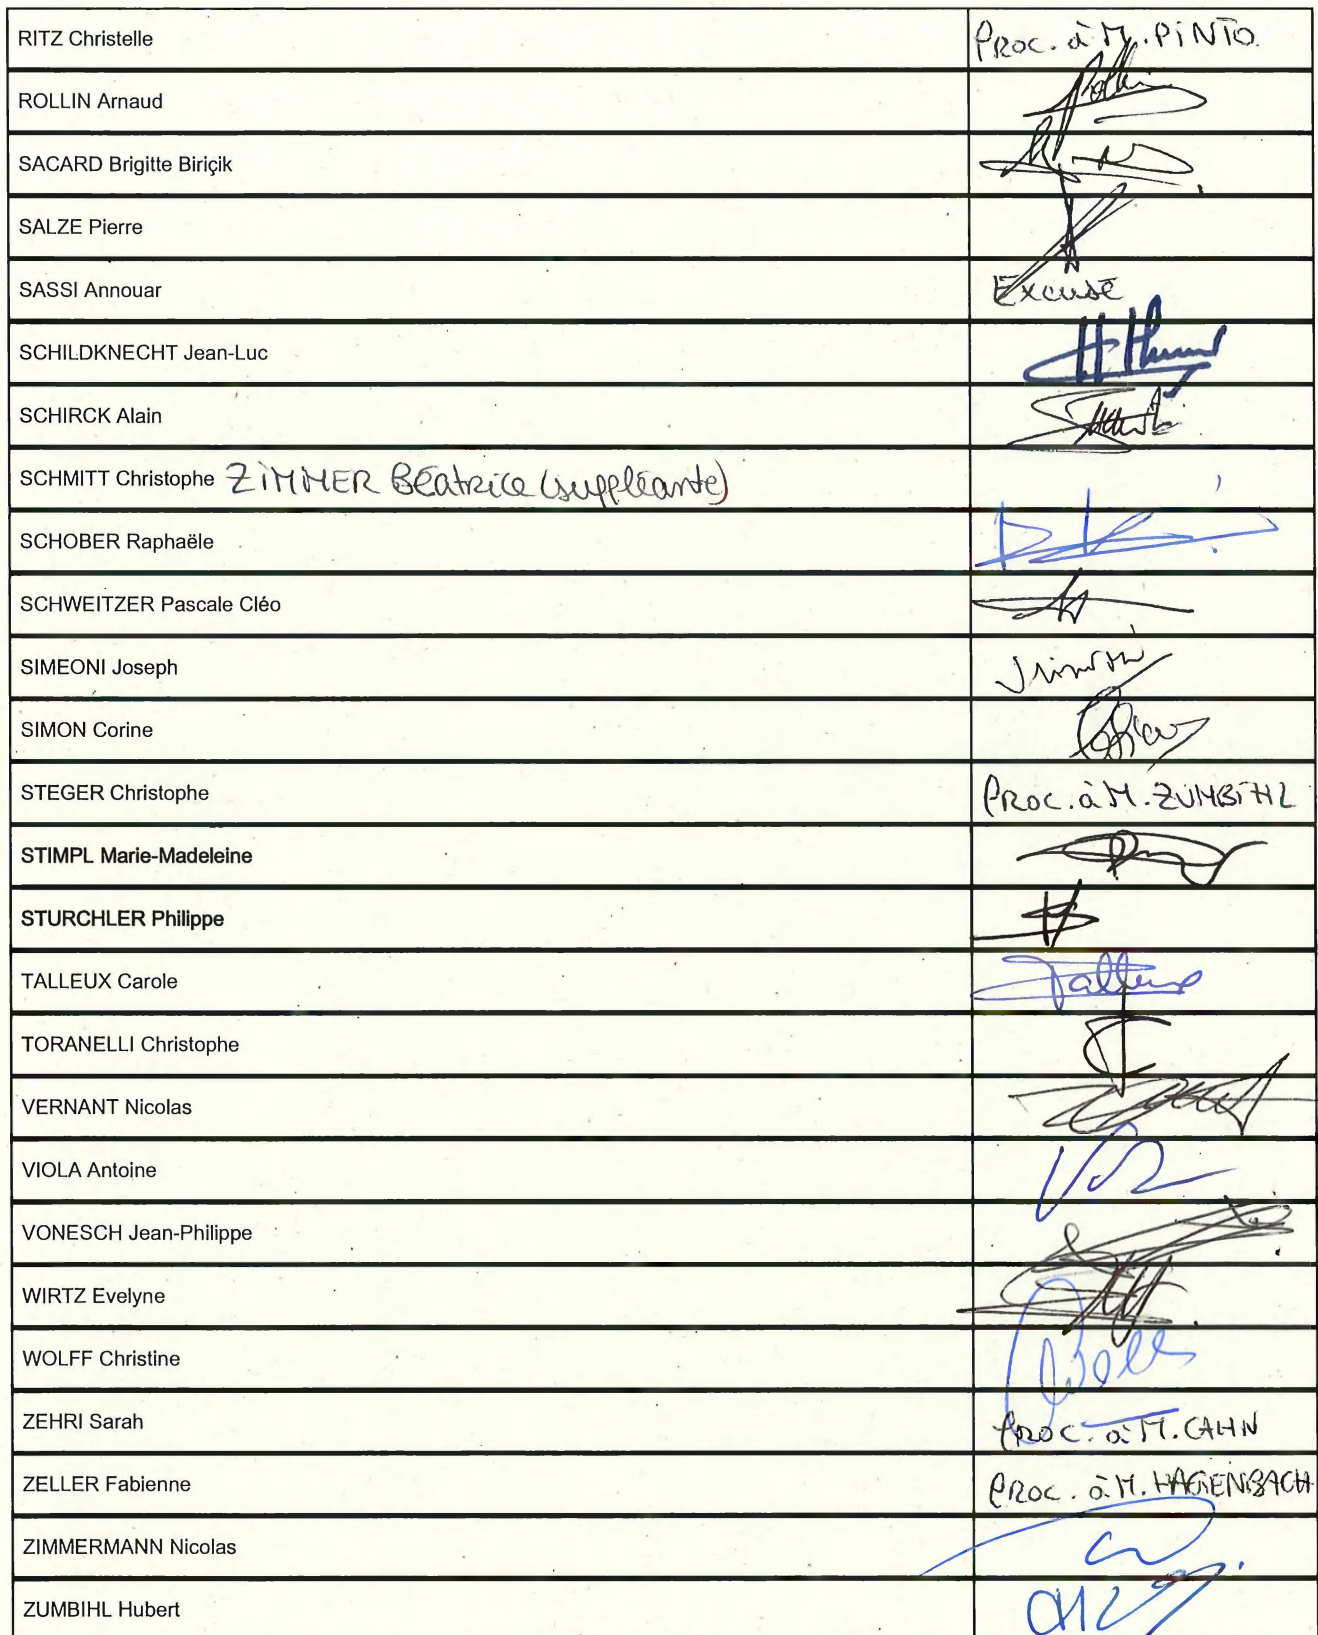 RITZ Christelle Proc. à M. PINTO
ROLLIN Arnaud
SACARD Brigitte Biriçik
SALZE Pierre
SASSI Annouar Excusé
SCHILDKNECHT Jean-Luc
SCHIRCK Alain
SCHMITT Christophe ZIMMER Béatrice (suppléante)
SCHOBER Raphaële
SCHWEITZER Pascale Cléo
SIMEONI Joseph
SIMON Corine
STEGER Christophe Proc. à M. ZUMBIHL
STIMPL Marie-Madeleine
STURCHLER Philippe
TALLEUX Carole Talleux
TORANELLI Christophe
VERNANT Nicolas
VIOLA Antoine
VONESCH Jean-Philippe
WIRTZ Evelyne
WOLFF Christine
ZEHRI Sarah Proc. à M. CAHN
ZELLER Fabienne Proc. à M. HAGENBACH
ZIMMERMANN Nicolas
ZUMBIHL Hubert